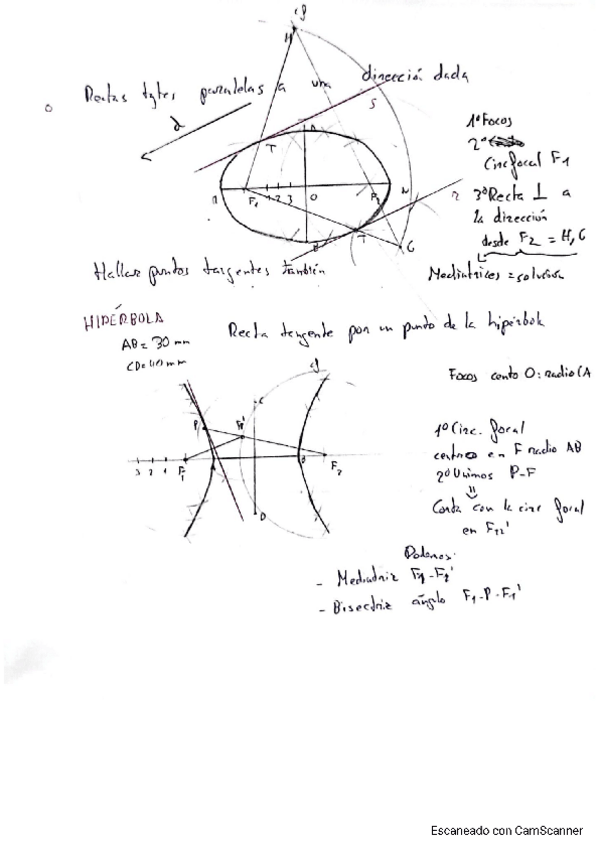 cf
H
Rectas tgtes paralelas a una dirección dada
d
S
1º Focos
2º
Circ focal F1
3º Recta ⊥ a
la dirección
desde F2 = H, G
Mediatrices = solución
A
T
F1
1 2 3
O
F2
B
T
G
Hallar puntos tangentes también
HIPÉRBOLA
AB = 30 mm
CD = 40 mm
Recta tangente por un punto de la hipérbola
cf
Focos cento O: radio CA
P
C
3 2 1
F1
B
F2
D
1º Circ. focal
centro en F radio AB
2º Unimos P-F
Corta con la circ focal
en
Podemos:
- Mediatriz
- Bisectriz ángulo F1-P-F1'
Escaneado con CamScanner